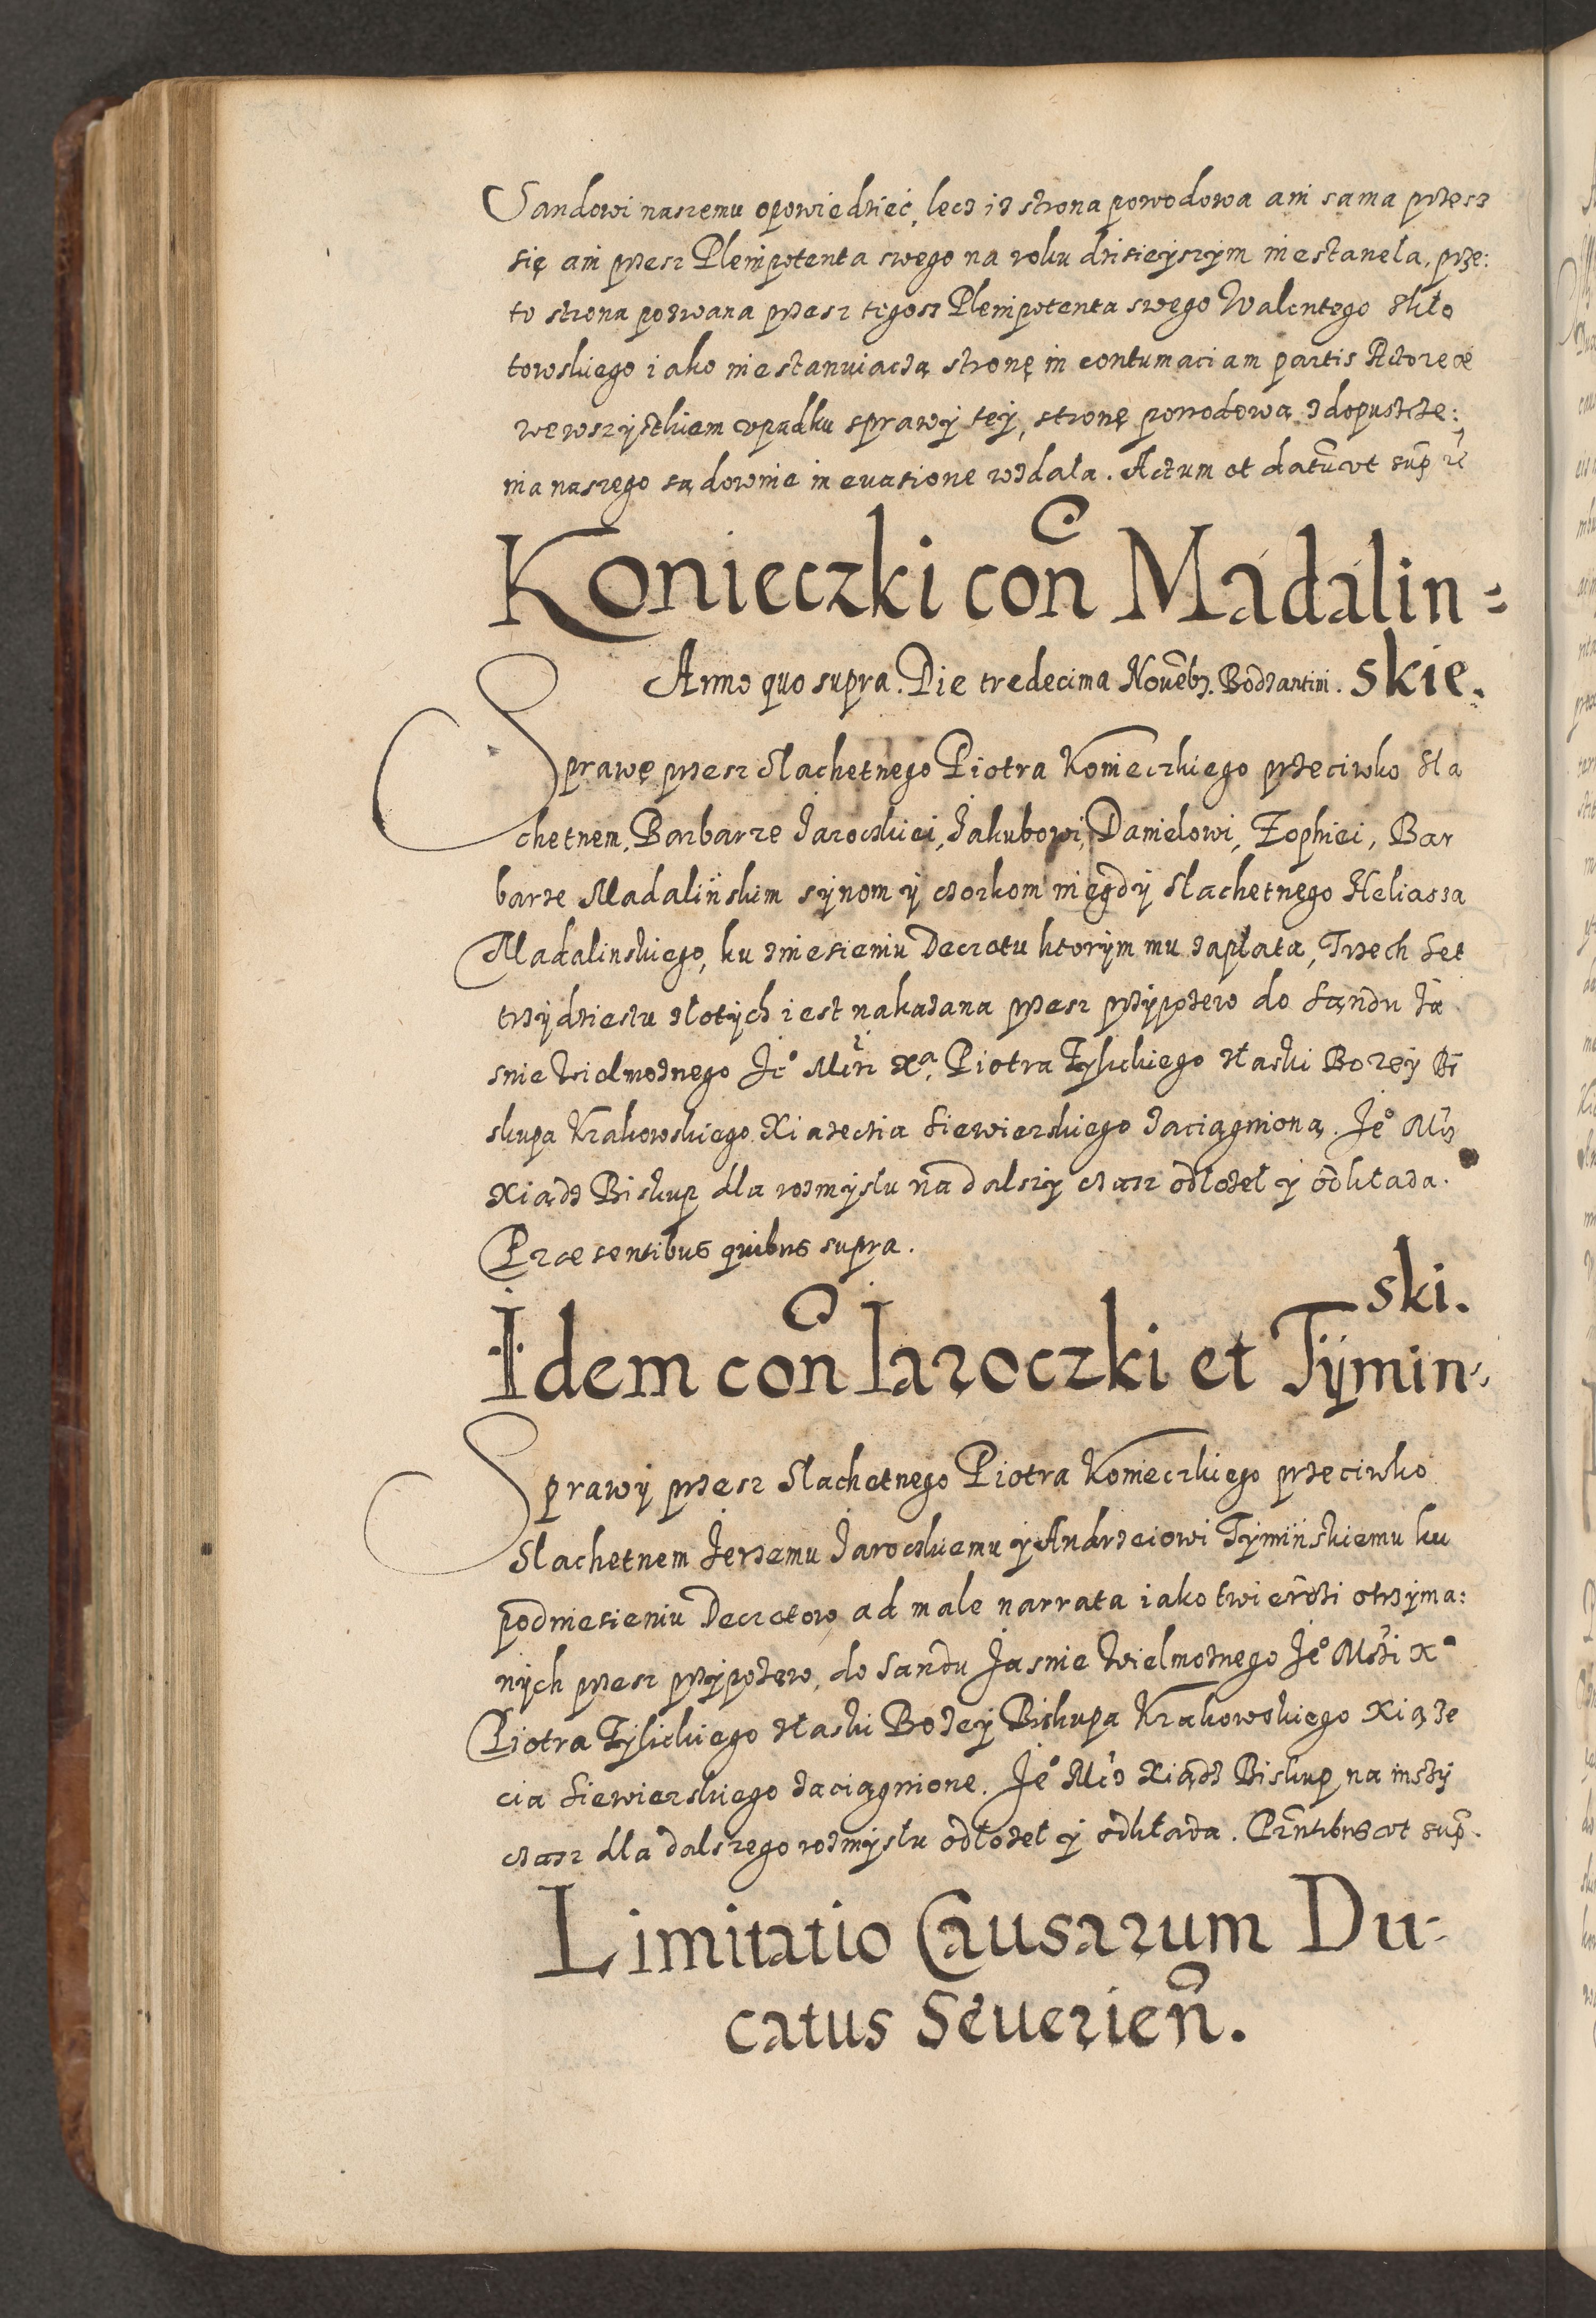 Sandowi naszemu opowiedzieć, lecz iz strona powodowa ani sama przesz
się ani przesz Plenipotenta swego na roku dzisieyszym niestaneła, prze:
to strona pozwana przesz tegosz Plenipotenta swego Walentego
towskiego iako niestanuiaczą stronę in contumaciam partis Actoreæ
wewszystkiem vpadku sprawy tey, stronę powodową zdopuszcze:
nia naszego sądownie in euasione wzdała. Actum et datũ vt sup
Konieczki con̄ Madalin=
skie.
Anno quo supra. Die tredecima Nouẽb. Bodzantini.
Sprawę przesz Slachetnego Piotra Konieczkiego przeciwko Sla
chetnem, Barbarze Jaroczkiei, Jakubowi, Danielowi, Zophiei, Bar
barze Madalińskim synom y czorkom niegdy Slachetnego Heliasza
Madalinskiego, ku zniesieniu Decretu ktorym mu zapłata, Trzech Set
trzydziestu złotych iest nakazana przesz przypozew do Sandu Ja
snie Wielmoznego Je° Mci Xa Piotra Tylickiego złaski Bozey Bi
skupa Krakowskiego Xiazecia Siewierskiego zaciągniona. Je° Mcz
Xiądz Biskup dla rozmysłu na dalszy czasz odłozeł y odkłada.
Præsentibus quibus supra.
Idem con̄ Iaroczki et Tymin=
ski.
Sprawy przesz Slachetnego Piotra Konieczkiego przeciwko
Slachetnem Jerzemu Jaroczkiemu y Andrzeiowi Tymińskiemu ku
podniesieniu Decretow ad male narrata iako twierdzi otrzyma:
nych przesz przypozew, do Sandu Jasnie Wielmoznego Je° Mści Xa
Piotra Tylickiego złaski Bozey Biskupa Krakowskiego Xiąze
cia Siewierskiego zaciągnione. Je° Mcz Xiądz Biskup na inszy
czasz dla dalszego rozmysłu odłozeł y odkłada. Prñtibus vt sup.
Limitatio Causarum Du-
catus Seuerien̄.